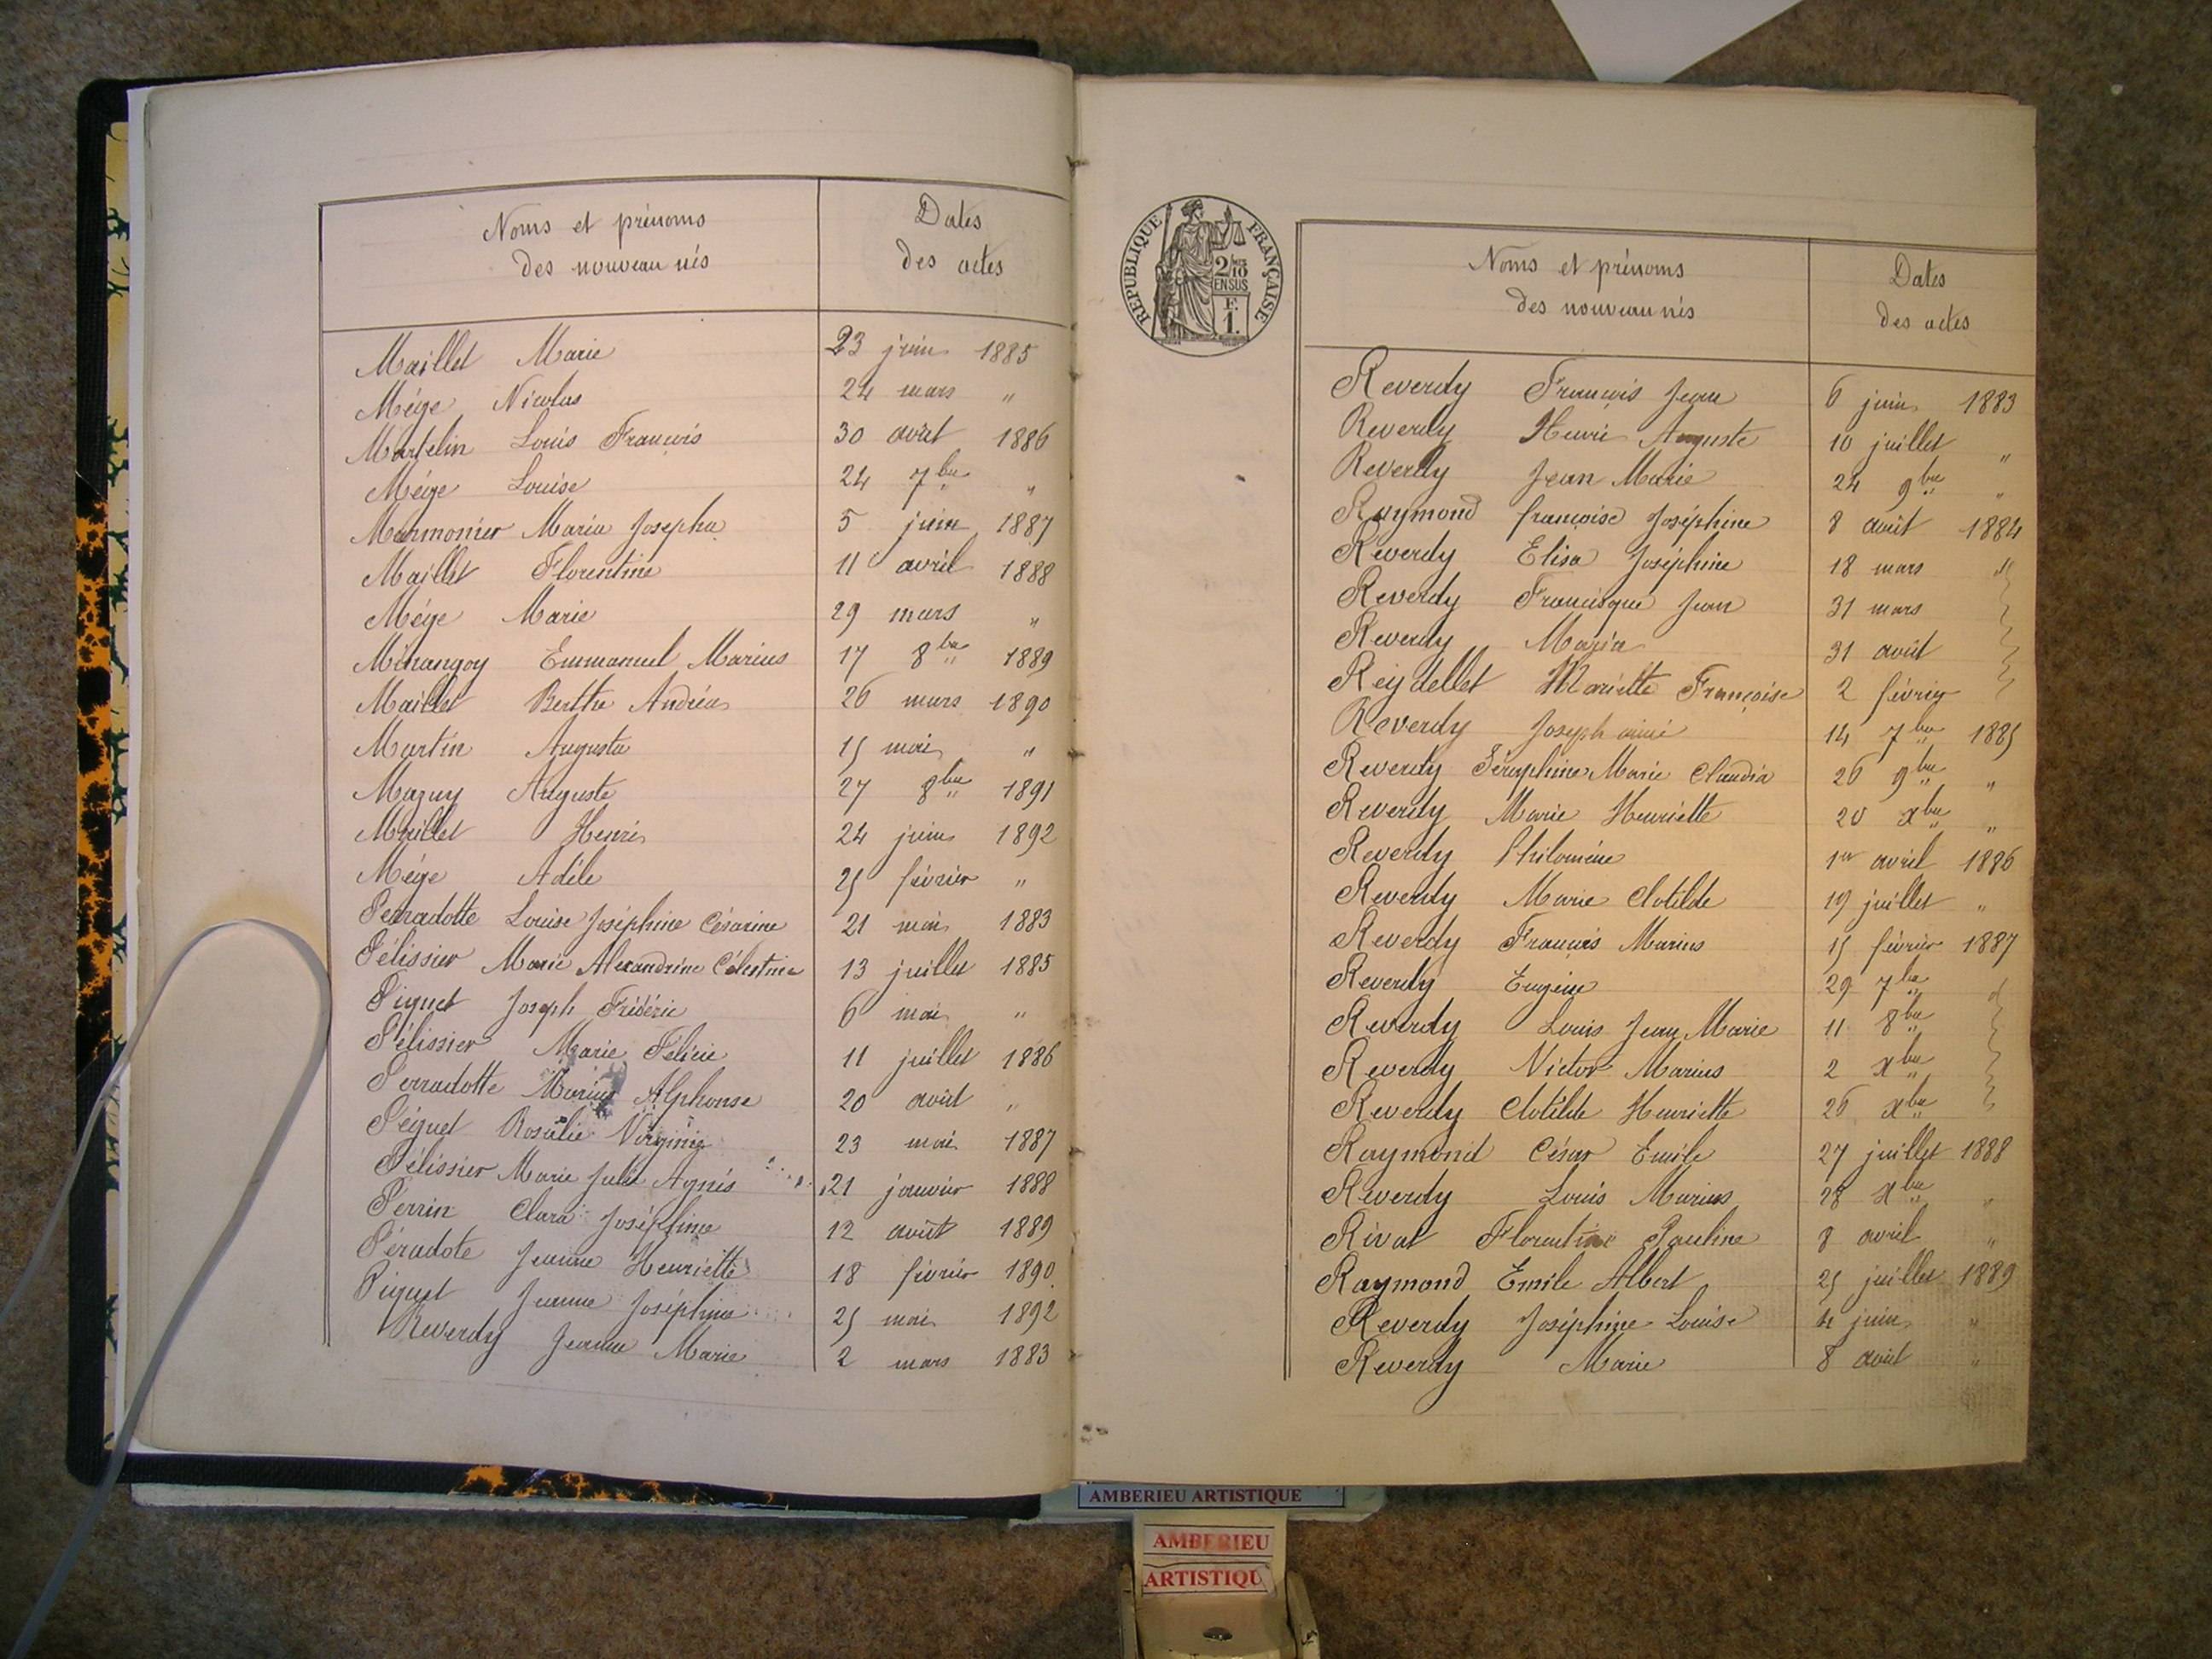 Noms et prénoms
des nouveau nés
Dates
des actes
Maillet Marie 23 juin 1885
Mége Nicolas 24 mars "
Martelin Louis François 30 août 1886
Mége Louise 24 7bre "
Marmonier Maria Josepha 5 juin 1887
Maillet Florentine 11 avril 1888
Mége Marie 29 mars "
Emmanuel Marius 17 8bre 1889
Maillet Berthe Andréa 26 mars 1890
Martin Augusta 15 mai "
Mazuy Auguste 27 8bre 1891
Maillet Henri 24 juin 1892
Mége Adèle 25 février "
Perradotte Louise Joséphine Césarine 21 mai 1883
Pélissier Marie Alexandrine Célestine 13 juillet 1885
Piguet Joseph Frédéric 6 mai "
Pélissier Marie Félicie 11 juillet 1886
Perradotte Marius Alphonse 20 août "
Péguet Rosalie Virginie 23 mai 1887
Pélissier Marie Julie Agnès 21 janvier 1888
Perrin Clara Joséphine 12 août 1889
Péradote Jeanne Henriette 18 février 1890
Piguet Jeanne Joséphine 25 mai 1892
Reverdy Jeanne Marie 2 mars 1883
REPUBLIQUE FRANÇAISE
2/10
EN SUS
F.
1.
Noms et prénoms
des nouveau nés
Dates
des actes
Reverdy François Jean 6 juin 1883
Reverdy Henri Auguste 10 juillet "
Reverdy Jean Marie 24 9bre "
Raymond françoise Joséphine 8 août 1884
Reverdy Elisa Joséphine 18 mars "
Reverdy Francisque Jean 31 mars
Reverdy 31 août
Reydellet Mariette Françoise 2 février
Reverdy Joseph aimé 14 7bre 1885
Reverdy Séraphine Marie Claudia 26 9bre "
Reverdy Marie Henriette 20 xbre "
Reverdy Philomène 1er avril 1886
Reverdy Marie Clotilde 19 juillet "
Reverdy François Marius 15 février 1887
Reverdy Eugène 29 7bre "
Reverdy Louis Jean Marie 11 8bre
Reverdy Victor Marius 2 xbre
Reverdy Clotilde Henriette 26 xbre
Raymond César Emile 27 juillet 1888
Reverdy Louis Marius 28 xbre "
Rivat Florentine Pauline 8 avril "
Raymond Emile Albert 25 juillet 1889
Reverdy Joséphine Louise 4 juin "
Reverdy Marie 8 août "
AMBERIEU ARTISTIQUE
AMBERIEU
ARTISTIQU